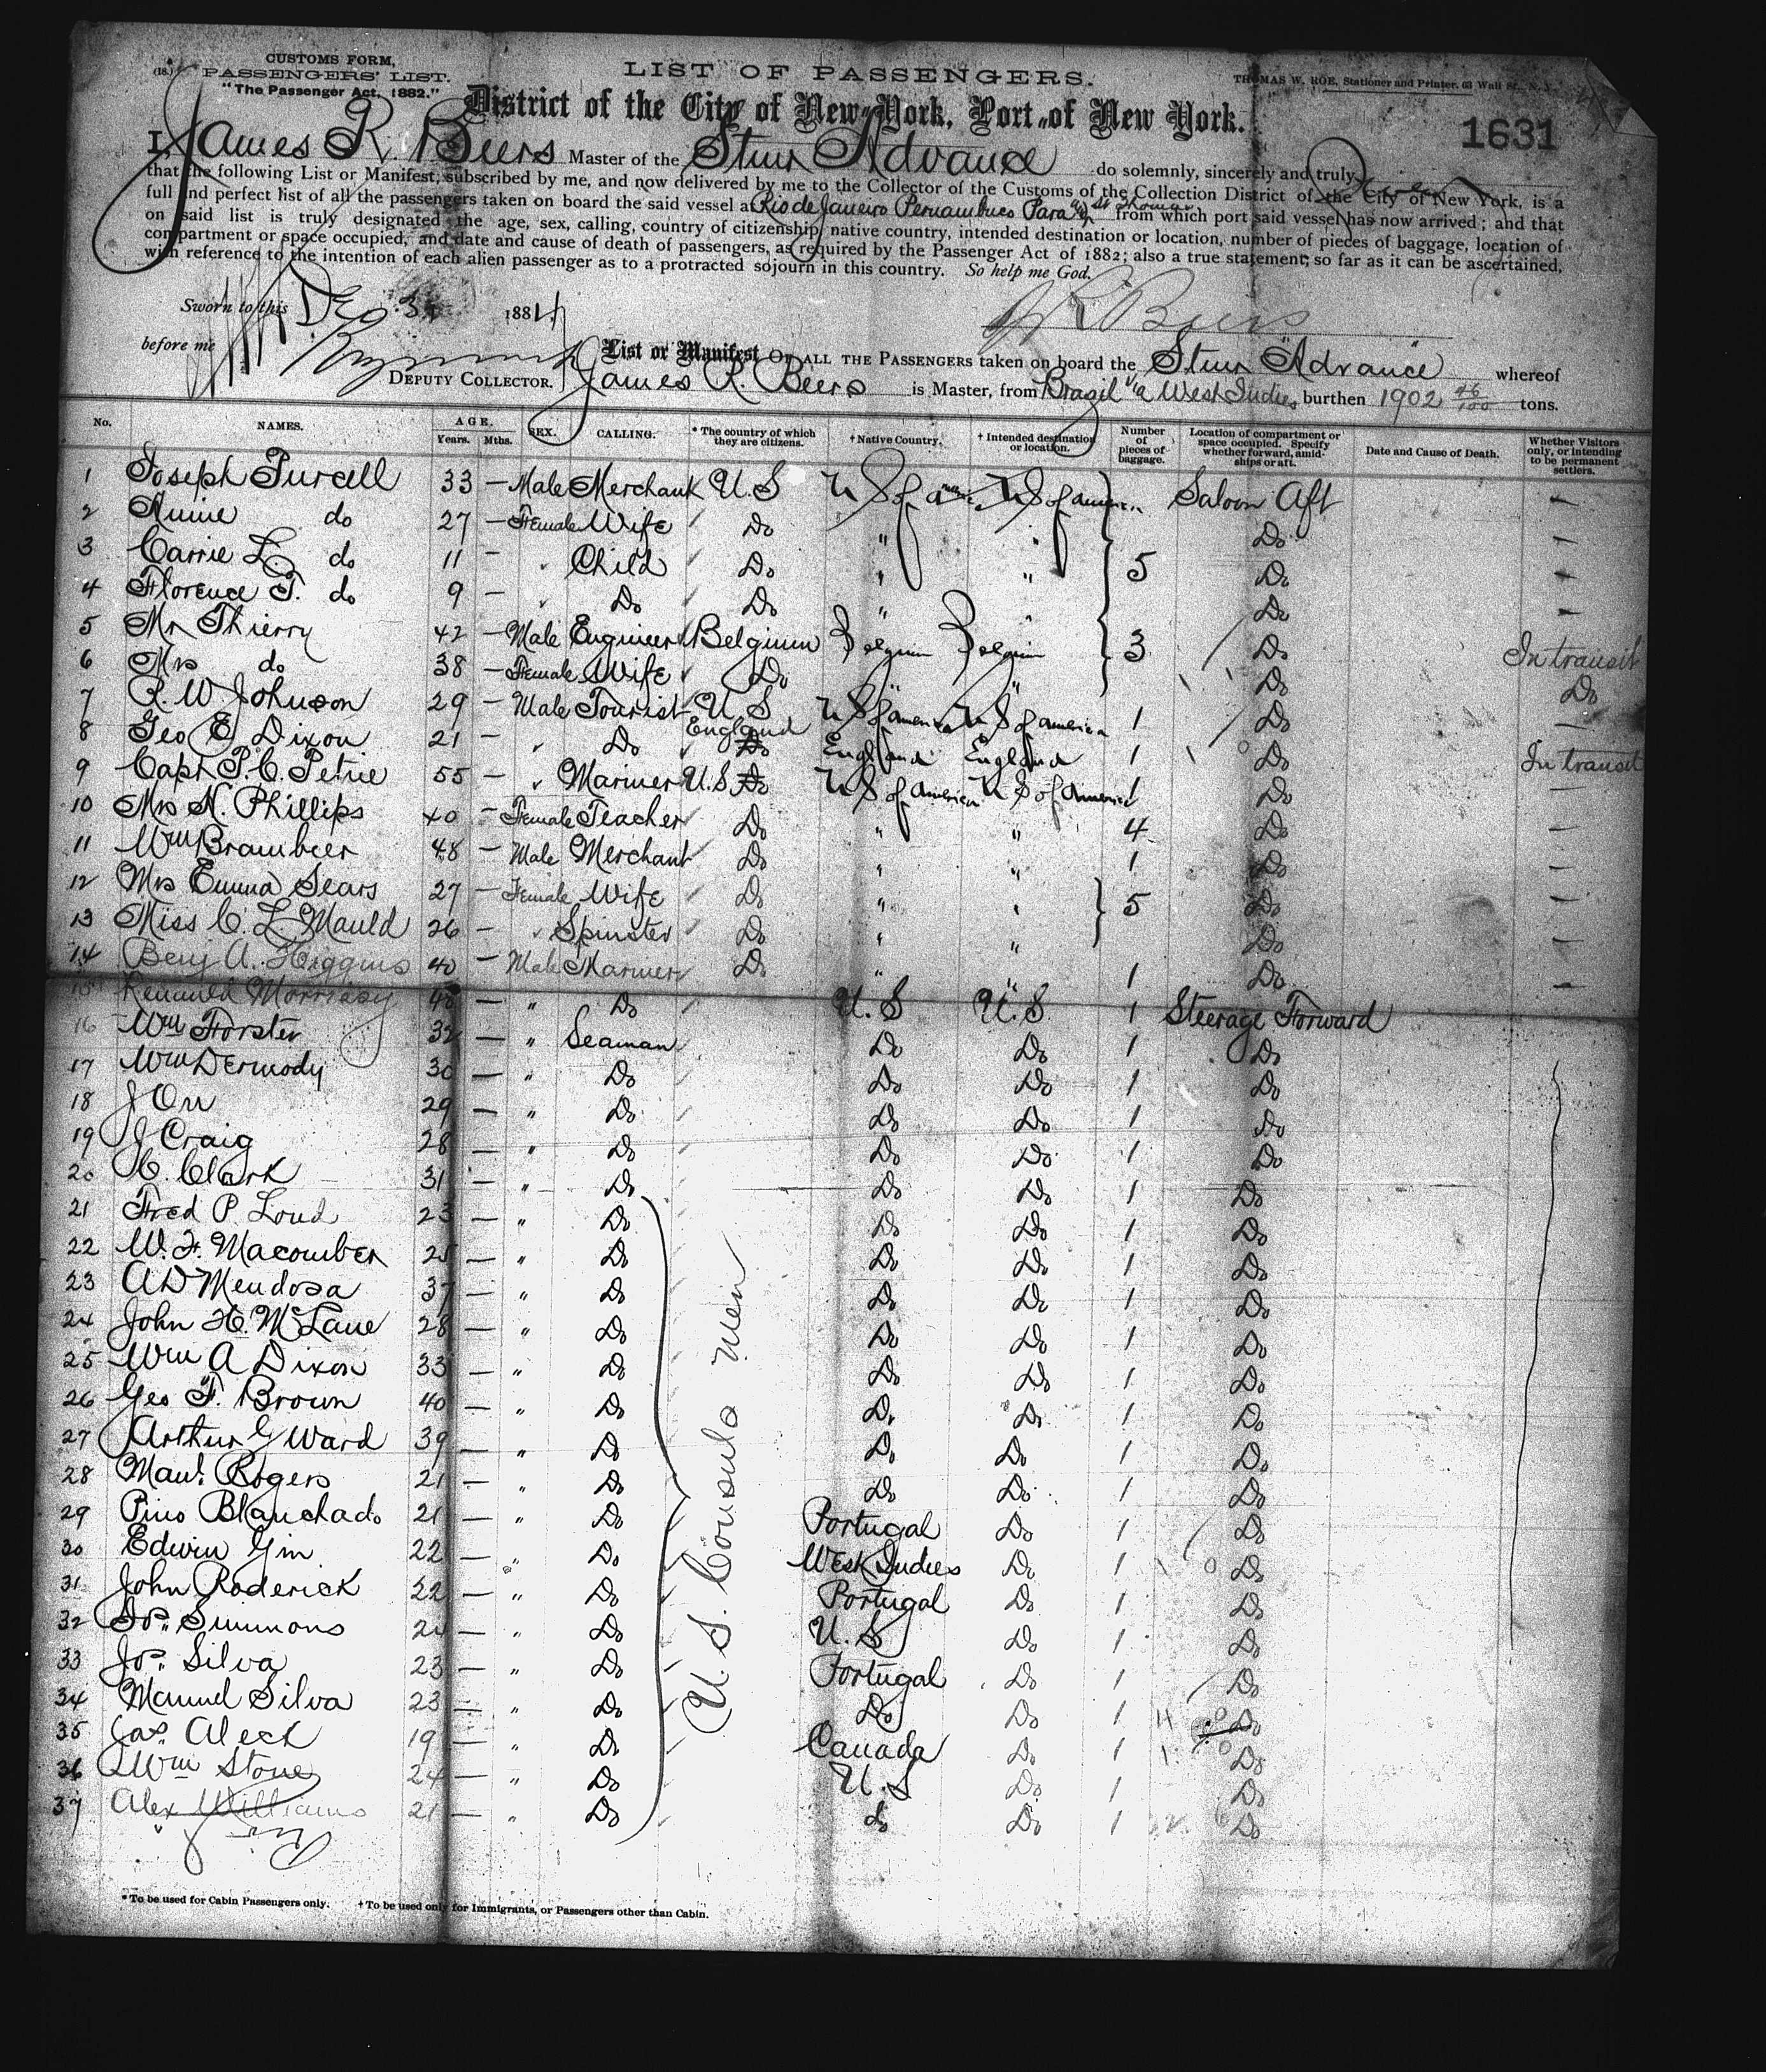 CUSTOMS FORM,
(18.) PASSENGERS' LIST.
"The Passenger Act, 1882."
LIST OF PASSENGERS.
THOMAS W. ROE, Stationer and Printer, 63 Wall St., N. Y.
District of the City of New-York, Port of New York.
1631
I, James R. Beers Master of the Stmr Advance do solemnly, sincerely and truly
that the following List or Manifest, subscribed by me, and now delivered by me to the Collector of the Customs of the Collection District of the City of New York, is a
full and perfect list of all the passengers taken on board the said vessel at Rio de Janeiro Pernambuco Para St Thomas from which port said vessel has now arrived; and that
on said list is truly designated the age, sex, calling, country of citizenship, native country, intended destination or location, number of pieces of baggage, location of
compartment or space occupied, and date and cause of death of passengers, as required by the Passenger Act of 1882; also a true statement, so far as it can be ascertained,
with reference to the intention of each alien passenger as to a protracted sojourn in this country. So help me God.
Sworn to this Dec 3 1884
J R Beers
before me
DEPUTY COLLECTOR.
List or Manifest OF ALL THE PASSENGERS taken on board the Stmr "Advance" whereof
James R. Beers is Master, from Brazil via West Indies burthen 1902 46/100 tons.
No. NAMES. AGE. Years. Mths. SEX. CALLING. * The country of which they are citizens. † Native Country. † Intended destination or location. Number of pieces of baggage. Location of compartment or space occupied. Specify whether forward, amidships or aft. Date and Cause of Death. Whether Visitors only, or intending to be permanent settlers.
1 Joseph Purcell 33 — Male Merchant U.S U S of America U S of America Saloon Aft —
2 Annie do 27 — Female Wife Do " " Do —
3 Carrie L. do 11 — " Child Do " " 5 Do —
4 Florence T. do 9 — " Do Do " " Do —
5 Mr Thierry 42 — Male Engineer Belgium Belgium Belgium 3 Do In transit
6 Mrs do 38 — Female Wife Do " " Do Do
7 R. W Johnson 29 — Male Tourist U.S U S of America U S of America 1 Do —
8 Geo E Dixon 21 — " Do England Do England England 1 Do In transit
9 Capt P. C. Petrie 55 — " Mariner U.S Do U S of America U S of America 1 Do —
10 Mrs N. Phillips 40 — Female Teacher Do " " 4 Do —
11 Wm Brambeer 48 — Male Merchant Do " " 1 Do —
12 Mrs Emma Sears 27 — Female Wife Do " " 5 Do —
13 Miss C. L. Mauld 26 — " Spinster Do " " Do —
14 Benj A. Higgins 40 — Male Mariner Do " " 1 Do —
15 Morrissy 40 — " Do U.S U.S 1 Steerage Forward
16 Wm Forster 32 — " Seaman Do Do 1 Do
17 Wm Dermody 30 — " Do Do Do 1 Do
18 J Orr 29 — " Do Do Do 1 Do
19 J Craig 28 — " Do Do Do 1 Do
20 C. Clark 31 — " Do Do Do 1 Do
21 Fred P. Loud 23 — " Do Do Do 1 Do
22 W. F. Macomber 25 — " Do Do Do 1 Do
23 A D Mendosa 37 — " Do Do Do 1 Do
24 John H. McLane 28 — " Do Do Do 1 Do
25 Wm A Dixon 33 — " Do Do Do 1 Do
26 Geo F. Brown 40 — " Do Do Do 1 Do
27 Arthur G Ward 39 — " Do Do Do 1 Do
28 Manl. Rogers 21 — " Do Do Do 1 Do
29 Pino Blanchado 21 — " Do Portugal Do 1 Do
30 Edwin Gin 22 — " Do West Indies Do 1 Do
31 John Roderick 22 — " Do Portugal Do 1 Do
32 Simmons — " Do U.S Do 1 Do
33 Jos. Silva 23 — " Do Portugal Do 1 Do
34 Manuel Silva 23 — " Do Do Do 1 Do
35 Jas. Aleck 19 — " Do Canada Do 1 Do
36 Wm Stone 24 — " Do U.S Do 1 Do
37 Alex Williams 21 — " Do do Do 1 Do
U.S. Consula Men
* To be used for Cabin Passengers only. † To be used only for Immigrants, or Passengers other than Cabin.